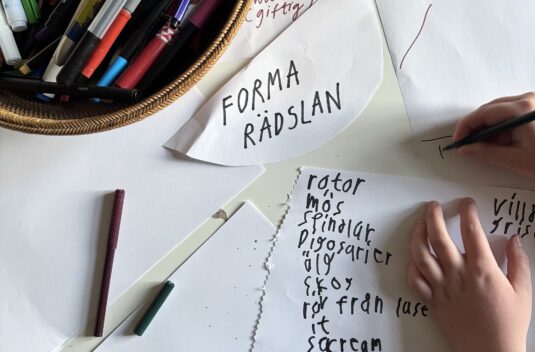 (giftig)
FORMA
RÄDSLAN
rotor
mös
spindlar
Digosarier
älg
skog
rör från luse
it
scream
villd
gris